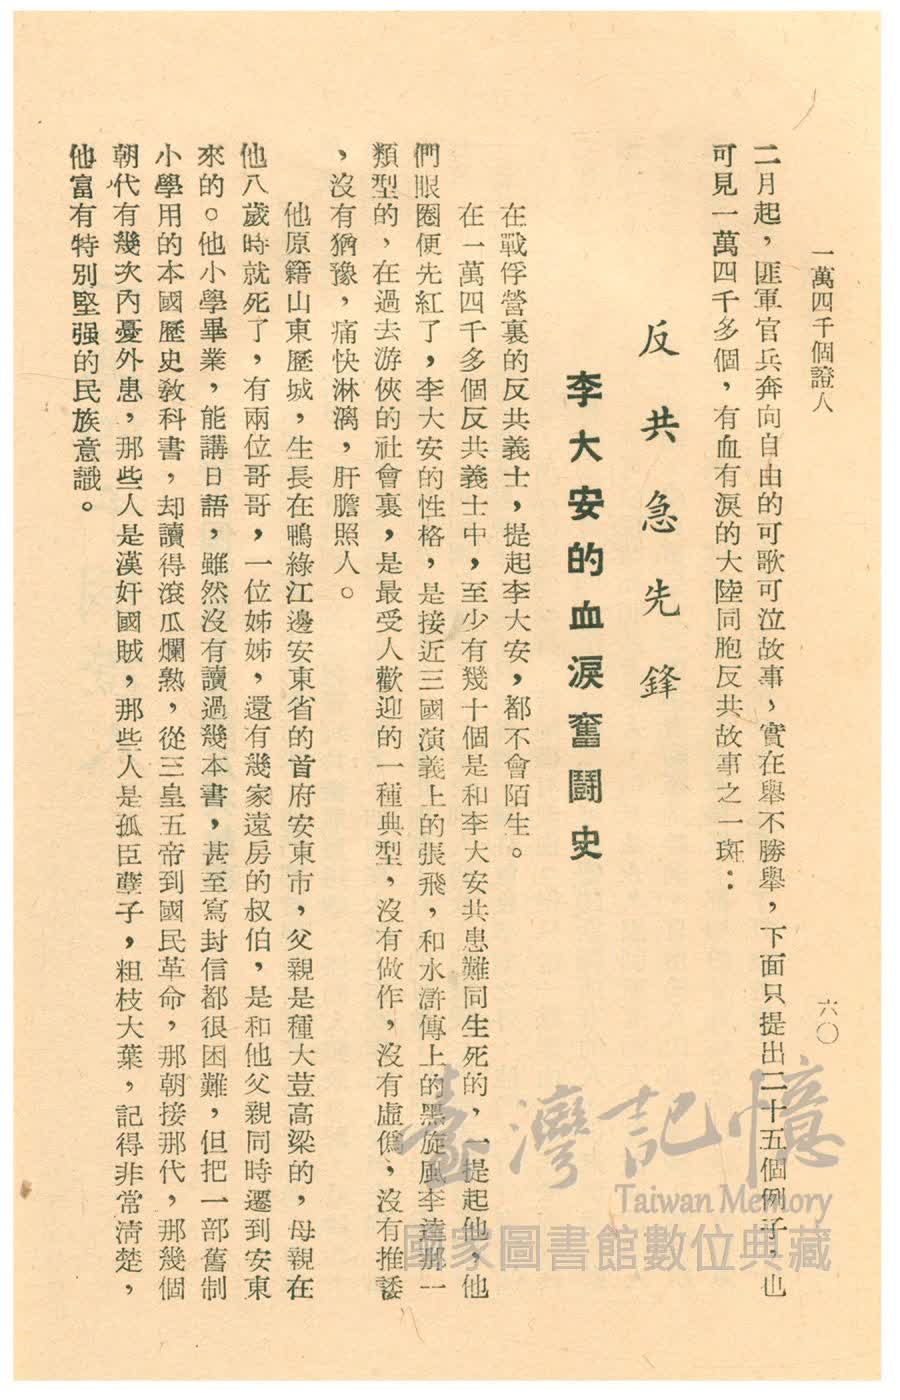 一萬四千個證人
六〇
二月起，匪軍官兵奔向自由的可歌可泣故事，實在舉不勝舉，下面只提出二十五個例子，也
可見一萬四千多個，有血有淚的大陸同胞反共故事之一斑：
反共急先鋒
李大安的血淚奮鬪史
在戰俘營裏的反共義士，提起李大安，都不會陌生。
在一萬四千多個反共義士中，至少有幾十個是和李大安共患難同生死的，一提起他，他
們眼圈便先紅了，李大安的性格，是接近三國演義上的張飛，和水滸傳上的黑旋風李逵那一
類型的，在過去游俠的社會裏，是最受人歡迎的一種典型，沒有做作，沒有虛僞，沒有推諉
，沒有猶豫，痛快淋漓，肝膽照人。
他原籍山東歷城，生長在鴨綠江邊安東省的首府安東市，父親是種大荳高梁的，母親在
他八歲時就死了，有兩位哥哥，一位姊姊，還有幾家遠房的叔伯，是和他父親同時遷到安東
來的。他小學畢業，能講日語，雖然沒有讀過幾本書，甚至寫封信都很困難，但把一部舊制
小學用的本國歷史教科書，却讀得滾瓜爛熟，從三皇五帝到國民革命，那朝接那代，那幾個
朝代有幾次內憂外患，那些人是漢奸國賊，那些人是孤臣孽子，粗枝大葉，記得非常清楚，
他富有特別堅强的民族意識。
臺灣記憶
Taiwan Memory
國家圖書館數位典藏